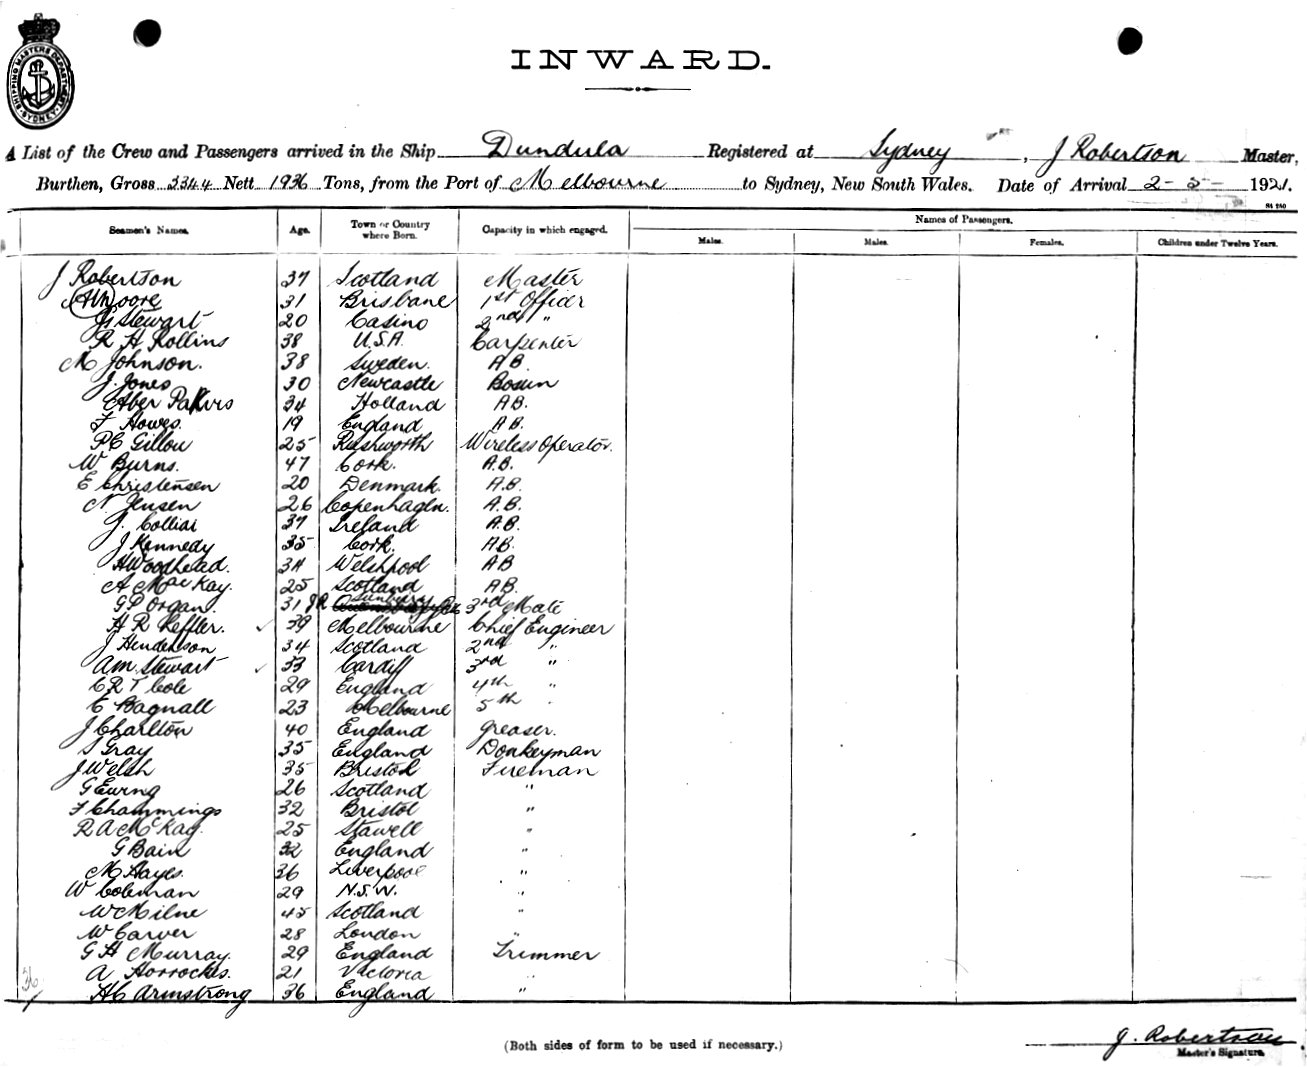 SHIPPING MASTERS DEPARTMENT SYDNEY
INWARD.
A List of the Crew and Passengers arrived in the Ship Dundula Registered at Sydney, J Robertson Master,
Burthen, Gross 3344 Nett 1936 Tons, from the Port of Melbourne to Sydney, New South Wales. Date of Arrival 2-5- 1921.
Seamen's Names. Age. Town or Country where Born. Capacity in which engaged. Names of Passengers.
Males. Males. Females. Children under Twelve Years.
J Robertson 37 Scotland Master
Moore 31 Brisbane 1st Officer
Stewart 20 Casino 2nd "
R H Rollins 38 U.S.A. Carpenter
M Johnson. 38 Sweden. A B.
J. Jones 30 Newcastle Bosun
34 Holland A.B.
F Howes. 19 England A.B.
P C Gillou 25 Rushworth Wireless Operator.
W Burns. 47 Cork. A.B.
E Christensen 20 Denmark. A.B.
N Jensen 26 Copenhagen. A.B.
J. 37 Ireland A.B.
J Kennedy 35 Cork. AB.
H Woodhead. 34 Welshpool AB
A MacKay. 25 Scotland AB.
G P Organ. 31 JR Sunbury 3rd Mate
H R Keffler. 39 Melbourne Chief Engineer
J Henderson 34 Scotland 2nd "
A.M. Stewart 33 Cardiff 3rd "
C R T Cole 29 England 4th "
E Bagnall 23 Melbourne 5th "
J Charlton 40 England Greaser.
S Gray 35 England Donkeyman
J Welsh 35 Bristol Fireman
G Ewing 26 Scotland "
F Chammings 32 Bristol "
R A McKay. 25 Stawell "
G Bain 32 England "
M Hayes. 36 Liverpool "
W Coleman 29 N.S.W. "
W Milne 45 Scotland "
W Carver 28 London "
G H Murray. 29 England Trimmer
A Horrockes. 21 Victoria "
H C Armstrong 36 England "
(Both sides of form to be used if necessary.)
J. Robertson
Master's Signature.